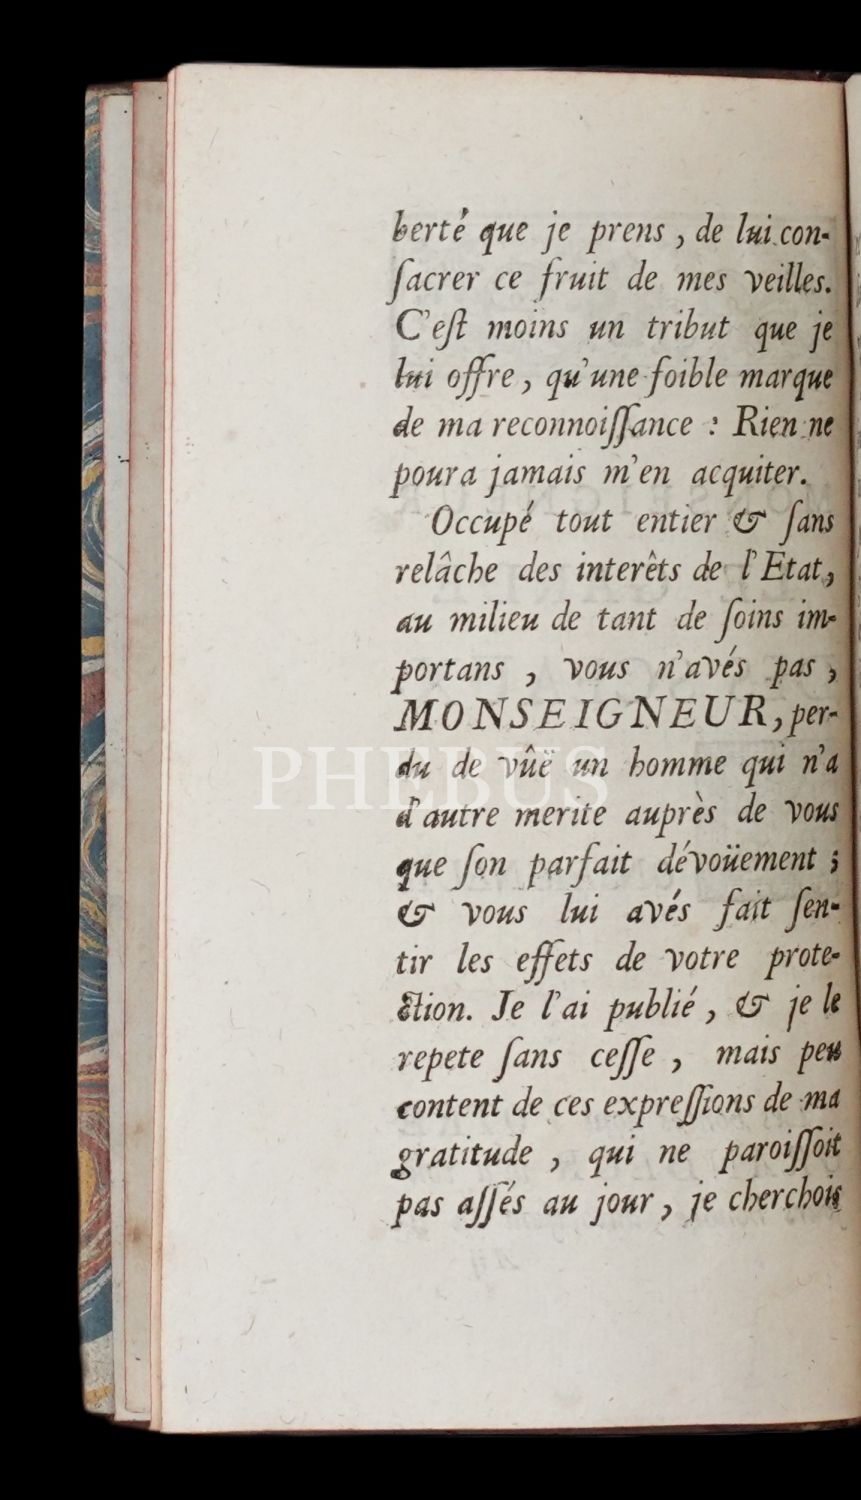 berté que je prens, de lui con-
ſacrer ce fruit de mes veilles.
C'eſt moins un tribut que je
lui offre, qu'une foible marque
de ma reconnoiſſance : Rien ne
poura jamais m'en acquiter.
Occupé tout entier & ſans
relâche des interêts de l'Etat,
au milieu de tant de ſoins im-
portans, vous n'avés pas,
MONSEIGNEUR, per-
du de vûë un homme qui n'a
d'autre merite auprès de vous
que ſon parfait dévoüement ;
& vous lui avés fait ſen-
tir les effets de votre prote-
ction. Je l'ai publié, & je le
repete ſans ceſſe, mais peu
content de ces expreſſions de ma
gratitude, qui ne paroiſſoit
pas aſſés au jour, je cherchois
PHEBUS